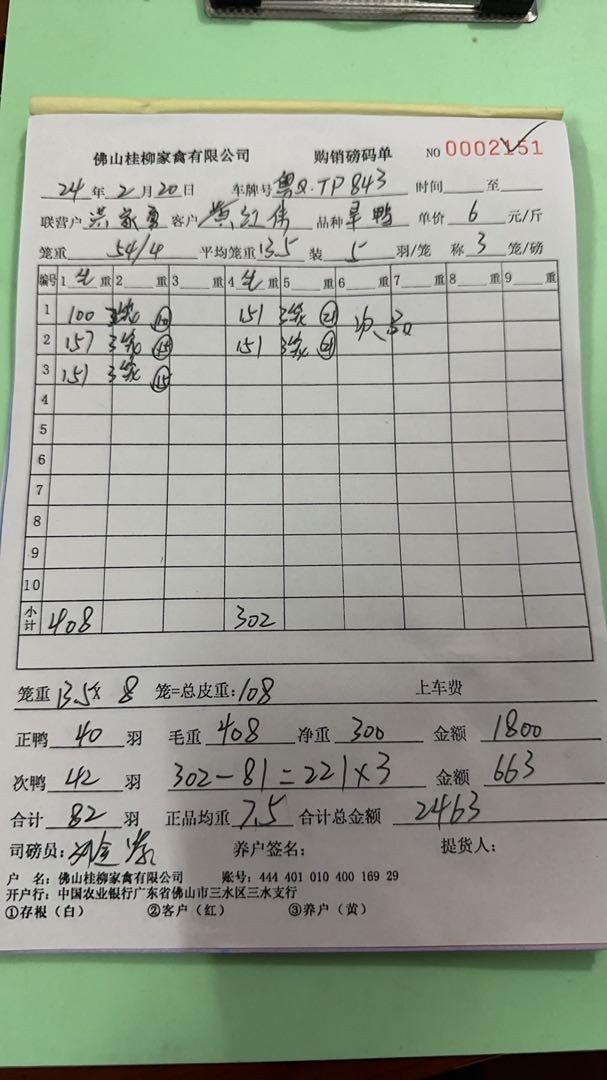 佛山桂柳家禽有限公司 购销磅码单 NO 0002151
24年2月20日 车牌号粤Q.TP843 时间 至
联营户 洪家勇 客户 黄红伟 品种 旱鸭 单价 6 元/斤
笼重 54/4 平均笼重13.5 装 5 羽/笼 称 3 笼/磅
编号 1 生 重 2 重 3 重 4 生 重 5 重 6 重 7 重 8 重 9 重
1 100 ⑩ 151 3笼 ㉑ 次
2 157 3笼 ⑮ 151 3笼 ㉑
3 151 3笼 ⑮
4
5
6
7
8
9
10
小计 408 302
笼重 13.5× 8 笼=总皮重:108 上车费
正鸭 40 羽 毛重 408 净重 300 金额 1800
次鸭 42 羽 302-81=221×3 金额 663
合计 82 羽 正品均重 7.5 合计总金额 2463
司磅员: 养户签名: 提货人:
户 名:佛山桂柳家禽有限公司 账号:444 401 010 400 169 29
开户行:中国农业银行广东省佛山市三水区三水支行
①存根(白) ②客户(红) ③养户(黄)